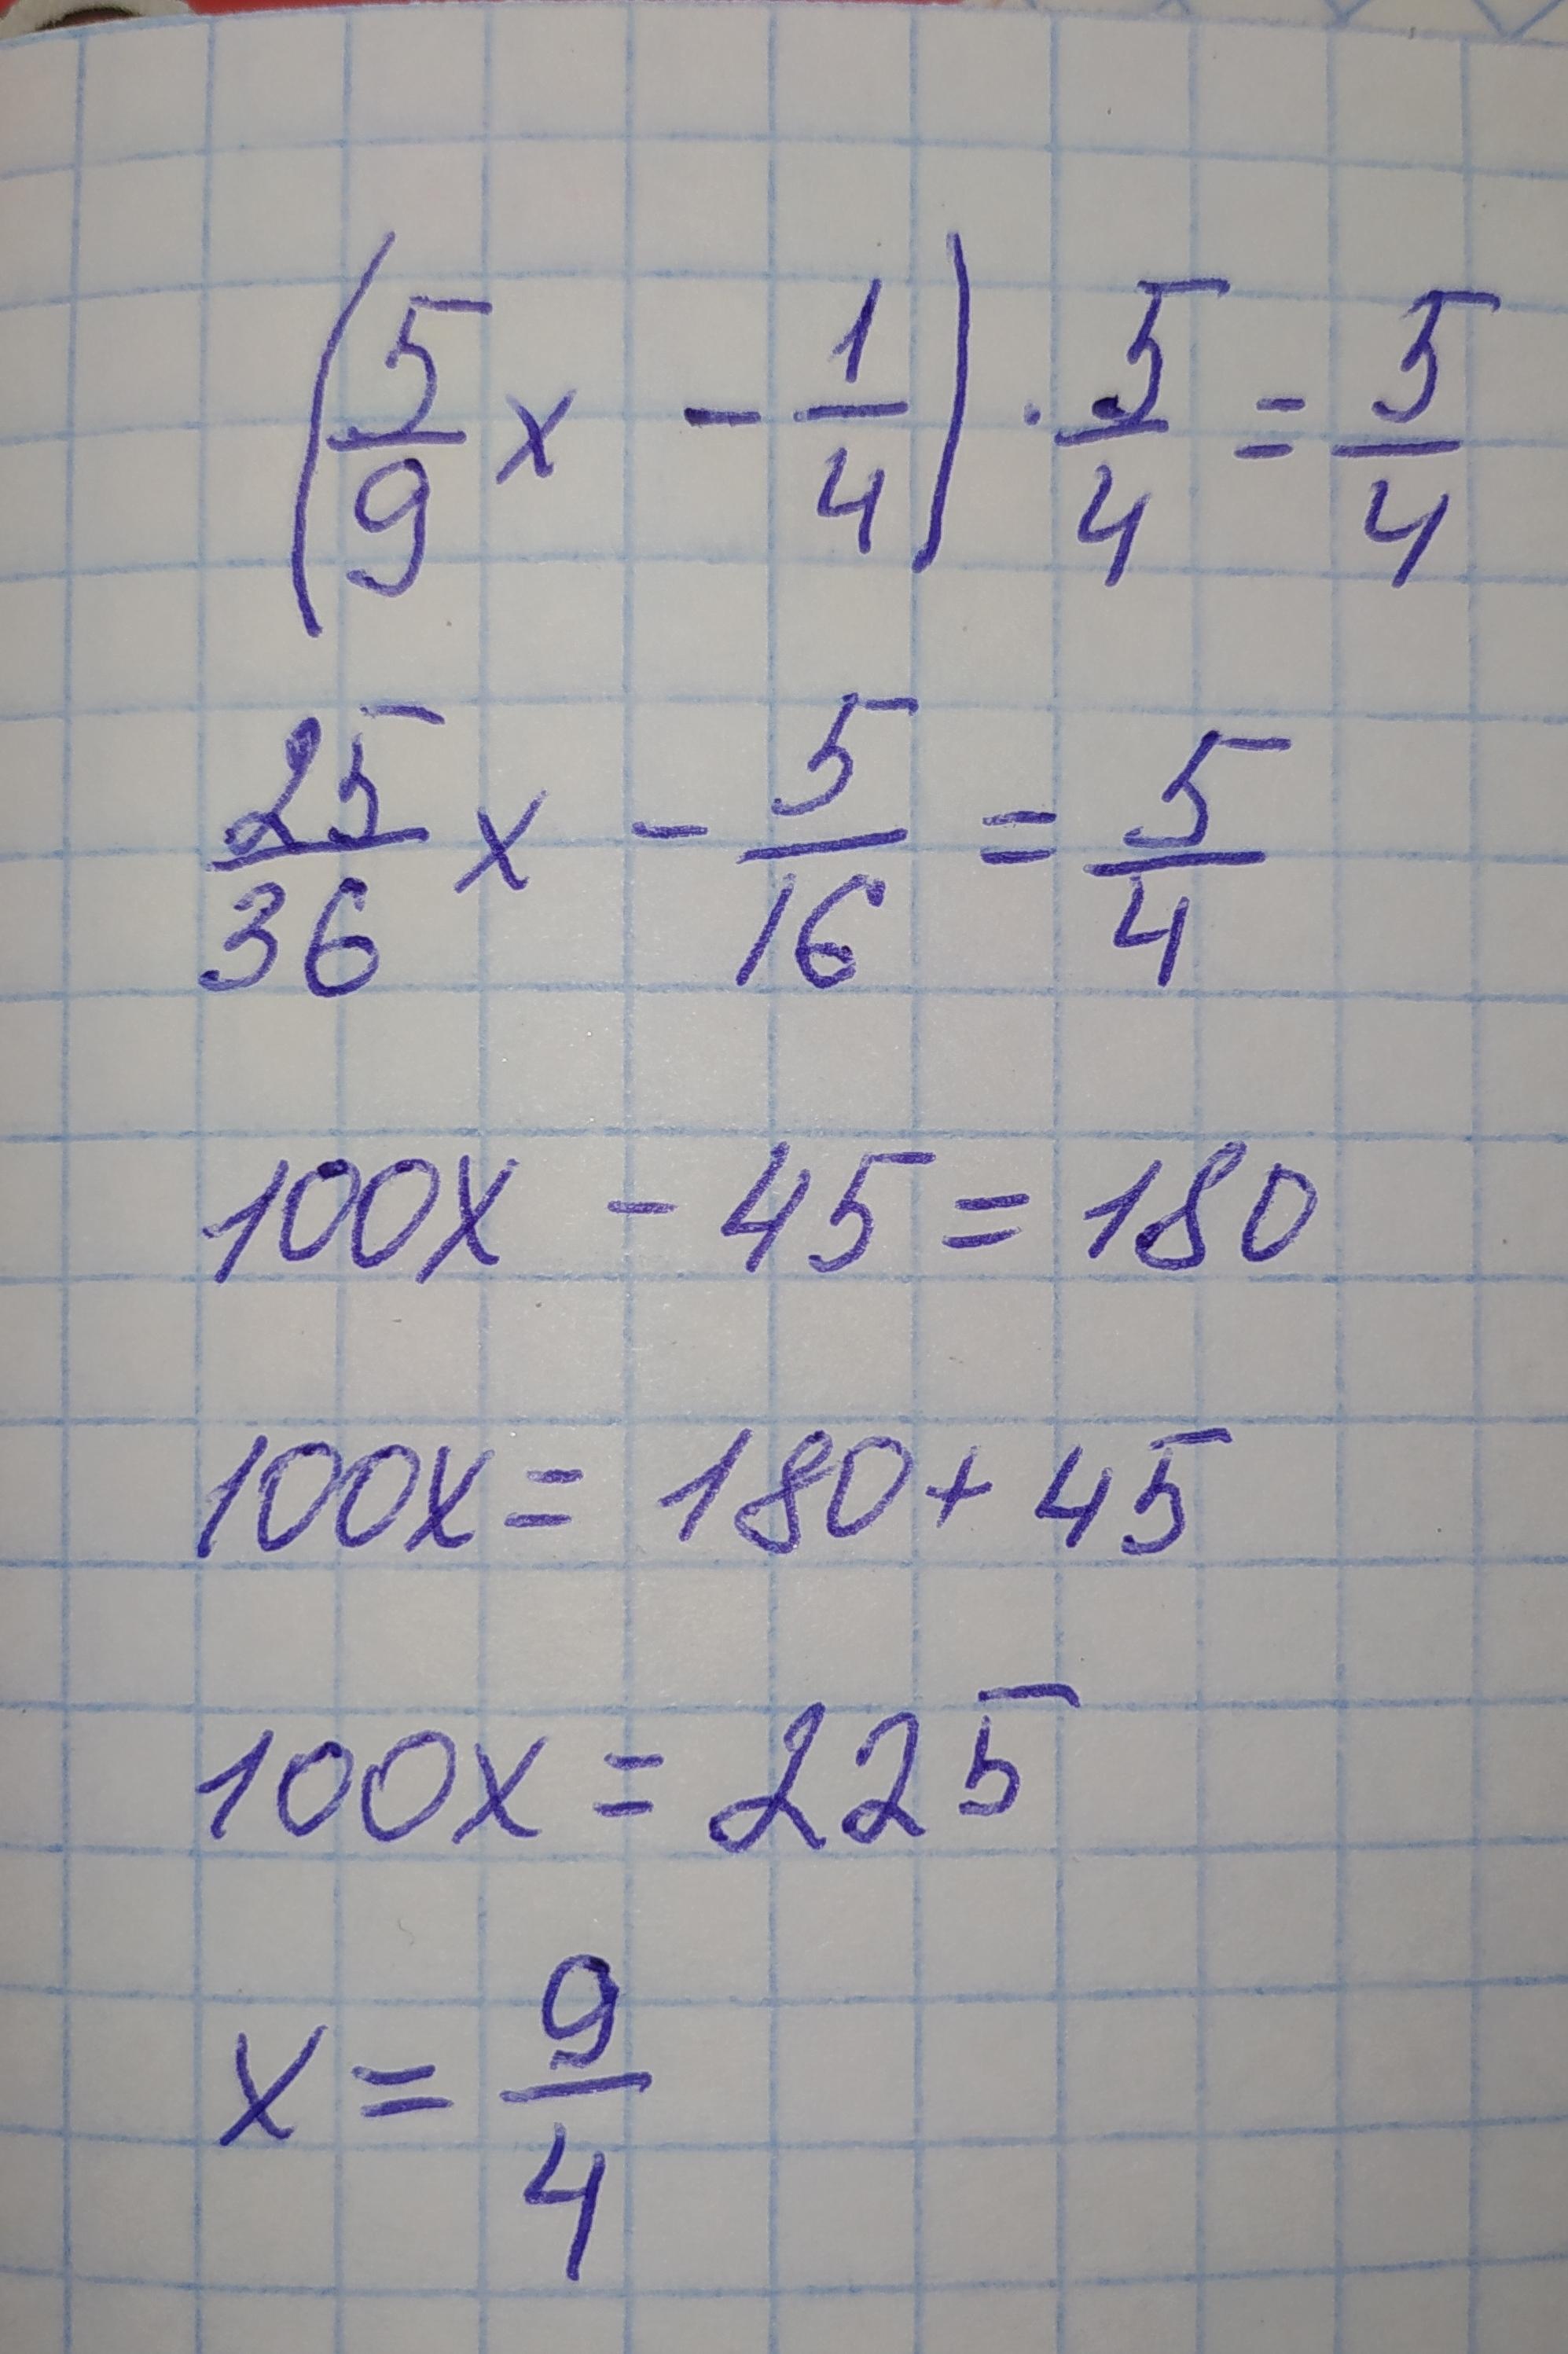 (5/9 x - 1/4) · 5/4 = 5/4
25/36 x - 5/16 = 5/4
100x - 45 = 180
100x = 180 + 45
100x = 225
x = 9/4